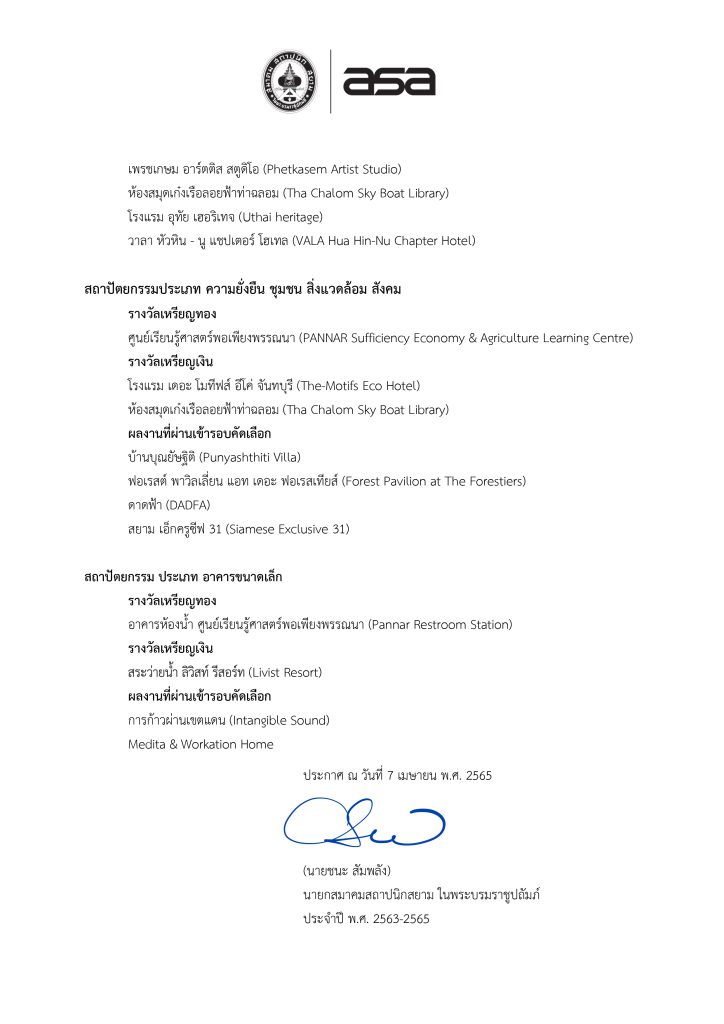 สมาคมสถาปนิกสยาม
asa
เพรชเกษม อาร์ตติส สตูดิโอ (Phetkasem Artist Studio)
ห้องสมุดเก๋งเรือลอยฟ้าท่าฉลอม (Tha Chalom Sky Boat Library)
โรงแรม อุทัย เฮอริเทจ (Uthai heritage)
วาลา หัวหิน - นู แชปเตอร์ โฮเทล (VALA Hua Hin-Nu Chapter Hotel)
สถาปัตยกรรมประเภท ความยั่งยืน ชุมชน สิ่งแวดล้อม สังคม
รางวัลเหรียญทอง
ศูนย์เรียนรู้ศาสตร์พอเพียงพรรณนา (PANNAR Sufficiency Economy & Agriculture Learning Centre)
รางวัลเหรียญเงิน
โรงแรม เดอะ โมทีฟส์ อีโค่ จันทบุรี (The-Motifs Eco Hotel)
ห้องสมุดเก๋งเรือลอยฟ้าท่าฉลอม (Tha Chalom Sky Boat Library)
ผลงานที่ผ่านเข้ารอบคัดเลือก
บ้านบุณยัษฐิติ (Punyashthiti Villa)
ฟอเรสต์ พาวิลเลี่ยน แอท เดอะ ฟอเรสเทียส์ (Forest Pavilion at The Forestiers)
ดาดฟ้า (DADFA)
สยาม เอ็กครูซีฟ 31 (Siamese Exclusive 31)
สถาปัตยกรรม ประเภท อาคารขนาดเล็ก
รางวัลเหรียญทอง
อาคารห้องน้ำ ศูนย์เรียนรู้ศาสตร์พอเพียงพรรณนา (Pannar Restroom Station)
รางวัลเหรียญเงิน
สระว่ายน้ำ ลิวิสท์ รีสอร์ท (Livist Resort)
ผลงานที่ผ่านเข้ารอบคัดเลือก
การก้าวผ่านเขตแดน (Intangible Sound)
Medita & Workation Home
ประกาศ ณ วันที่ 7 เมษายน พ.ศ. 2565
(นายชนะ สัมพลัง)
นายกสมาคมสถาปนิกสยาม ในพระบรมราชูปถัมภ์
ประจำปี พ.ศ. 2563-2565